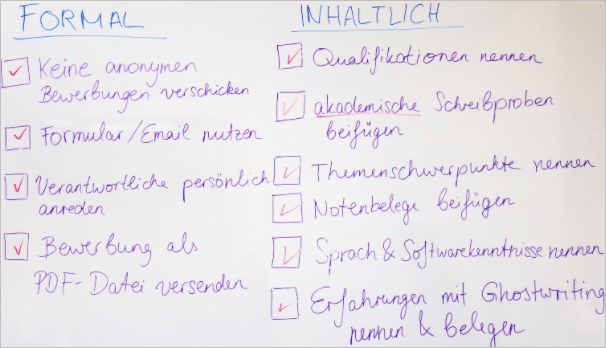 FORMAL
Keine anonymen
Bewerbungen verschicken
Formular/Email nutzen
Verantwortliche persönlich
anreden
Bewerbung als
PDF-Datei versenden
INHALTLICH
Qualifikationen nennen
akademische Schreibproben
beifügen
Themenschwerpunkte nennen
Notenbelege beifügen
Sprach & Softwarekenntnisse nennen
Erfahrungen mit Ghostwriting
nennen & belegen